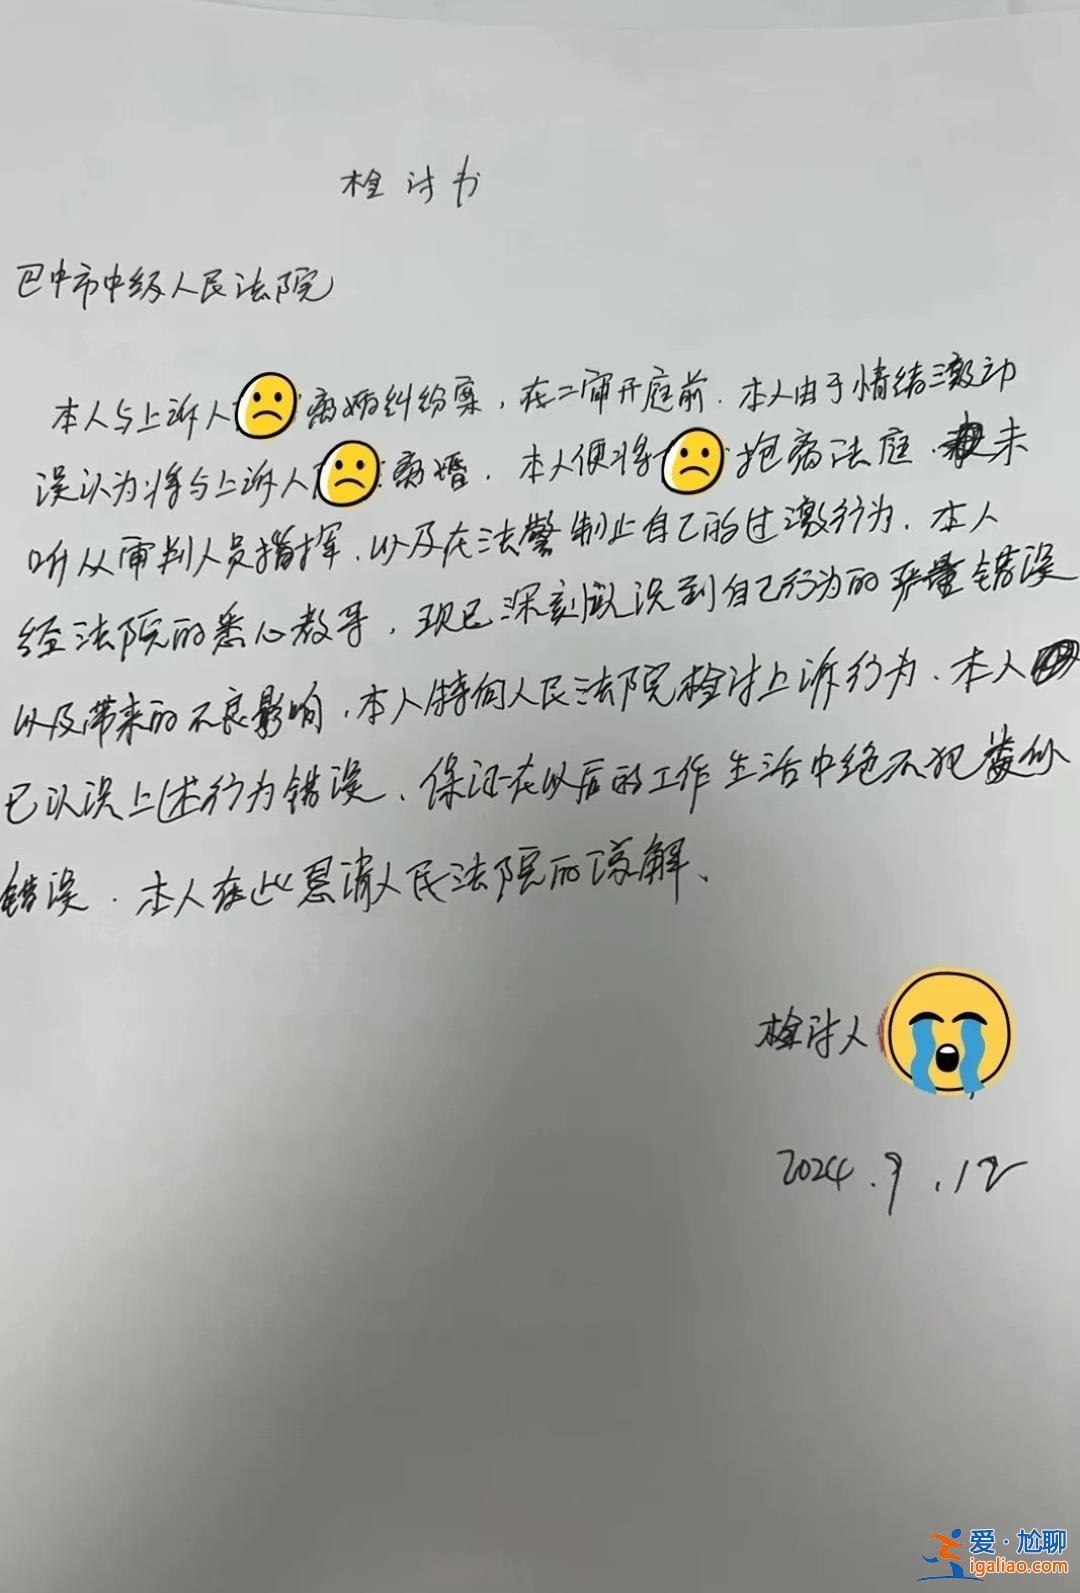 检讨书
巴中市中级人民法院
本人与上诉人 离婚纠纷案，在二审开庭前.本人由于情绪激动
误认为将与上诉人 离婚.本人便将 抱离法庭.未
听从审判人员指挥.以及在法警制止自己的过激行为.本人
经法院的悉心教导，现已深刻认识到自己行为的严重错误
以及带来的不良影响.本人特向人民法院检讨上诉行为.本人
已认识上述行为错误、保证在以后的工作生活中绝不犯类似
错误.本人在此恳请人民法院的谅解、
检讨人
2024.9.12
爱·尬聊
igaliao.com